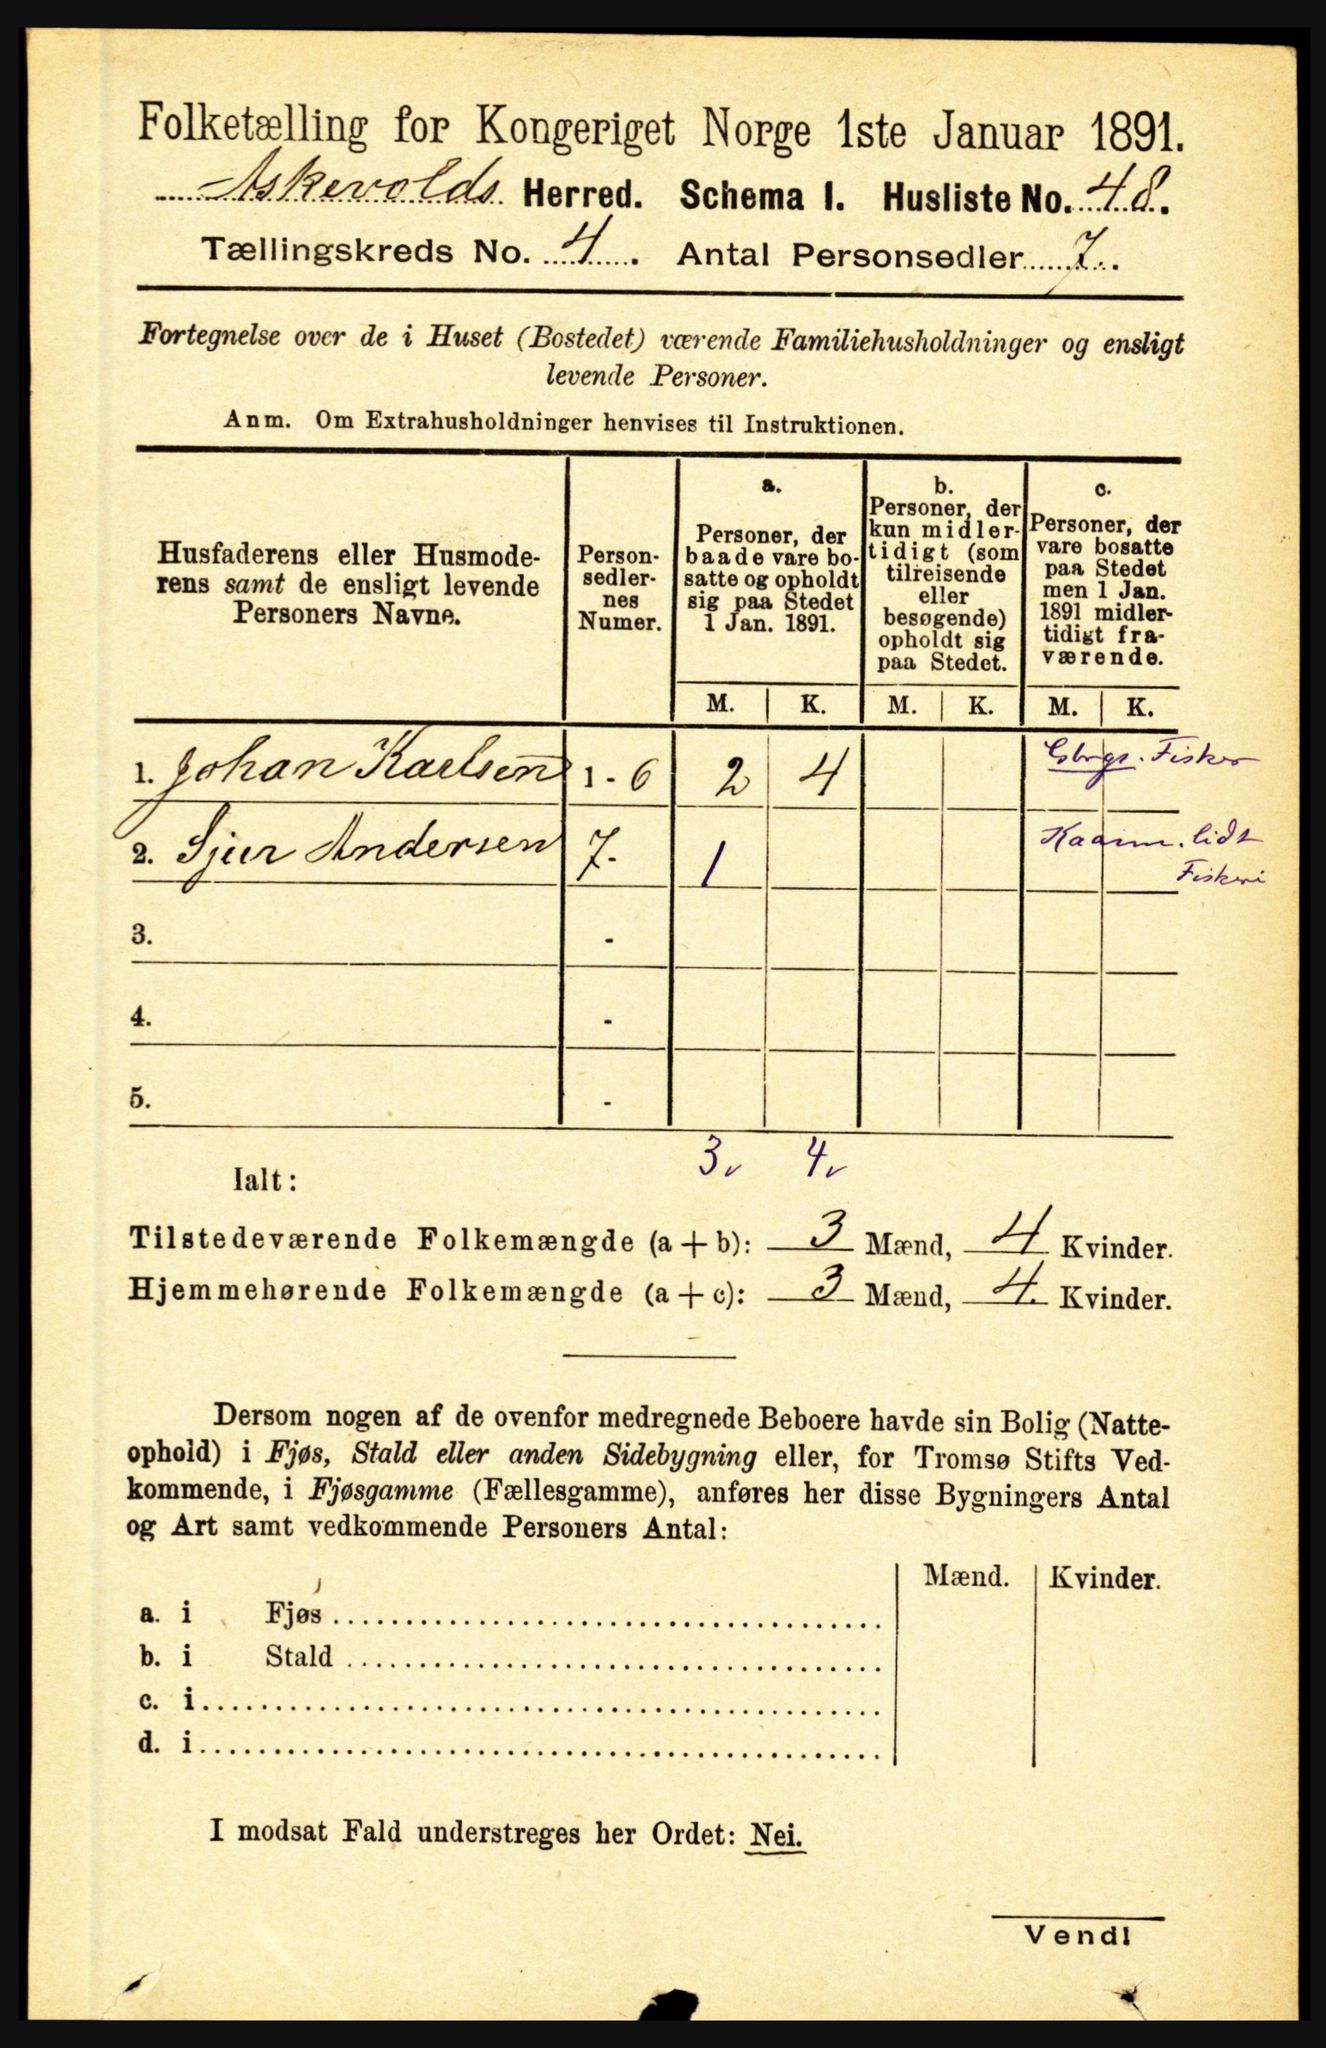 Folketælling for Kongeriget Norge 1ste Januar 1891.
Askevolds Herred. Schema I. Husliste No. 48.
Tællingskreds No. 4. Antal Personsedler 7.
Fortegnelse over de i Huset (Bostedet) værende Familiehusholdninger og ensligt
levende Personer.
Anm. Om Extrahusholdninger henvises til Instruktionen.
Husfaderens eller Husmode-
rens samt de ensligt levende
Personers Navne.
Person-
sedler-
nes
Numer.
a.
Personer, der
baade vare bo-
satte og opholdt
sig paa Stedet
1 Jan. 1891.
b.
Personer, der
kun midler-
tidigt (som
tilreisende
eller
besøgende)
opholdt sig
paa Stedet.
c.
Personer, der
vare bosatte
paa Stedet
men 1 Jan.
1891 midler-
tidigt fra-
værende.
M. K. M. K. M. K.
1. Johan Karlsen 1 - 6 2 4 Gbrgr. Fisker
2. Sjur Andersen 7 - 1 lidt
Fiskeri
3. -
4. -
5. -
3 4
Ialt:
Tilstedeværende Folkemængde (a + b): 3 Mænd, 4 Kvinder.
Hjemmehørende Folkemængde (a + c): 3 Mænd, 4. Kvinder.
Dersom nogen af de ovenfor medregnede Beboere havde sin Bolig (Natte-
ophold) i Fjøs, Stald eller anden Sidebygning eller, for Tromsø Stifts Ved-
kommende, i Fjøsgamme (Fællesgamme), anføres her disse Bygningers Antal
og Art samt vedkommende Personers Antal:
Mænd. Kvinder.
a. i Fjøs
b. i Stald
c. i
d. i
I modsat Fald understreges her Ordet: Nei.
Vend!